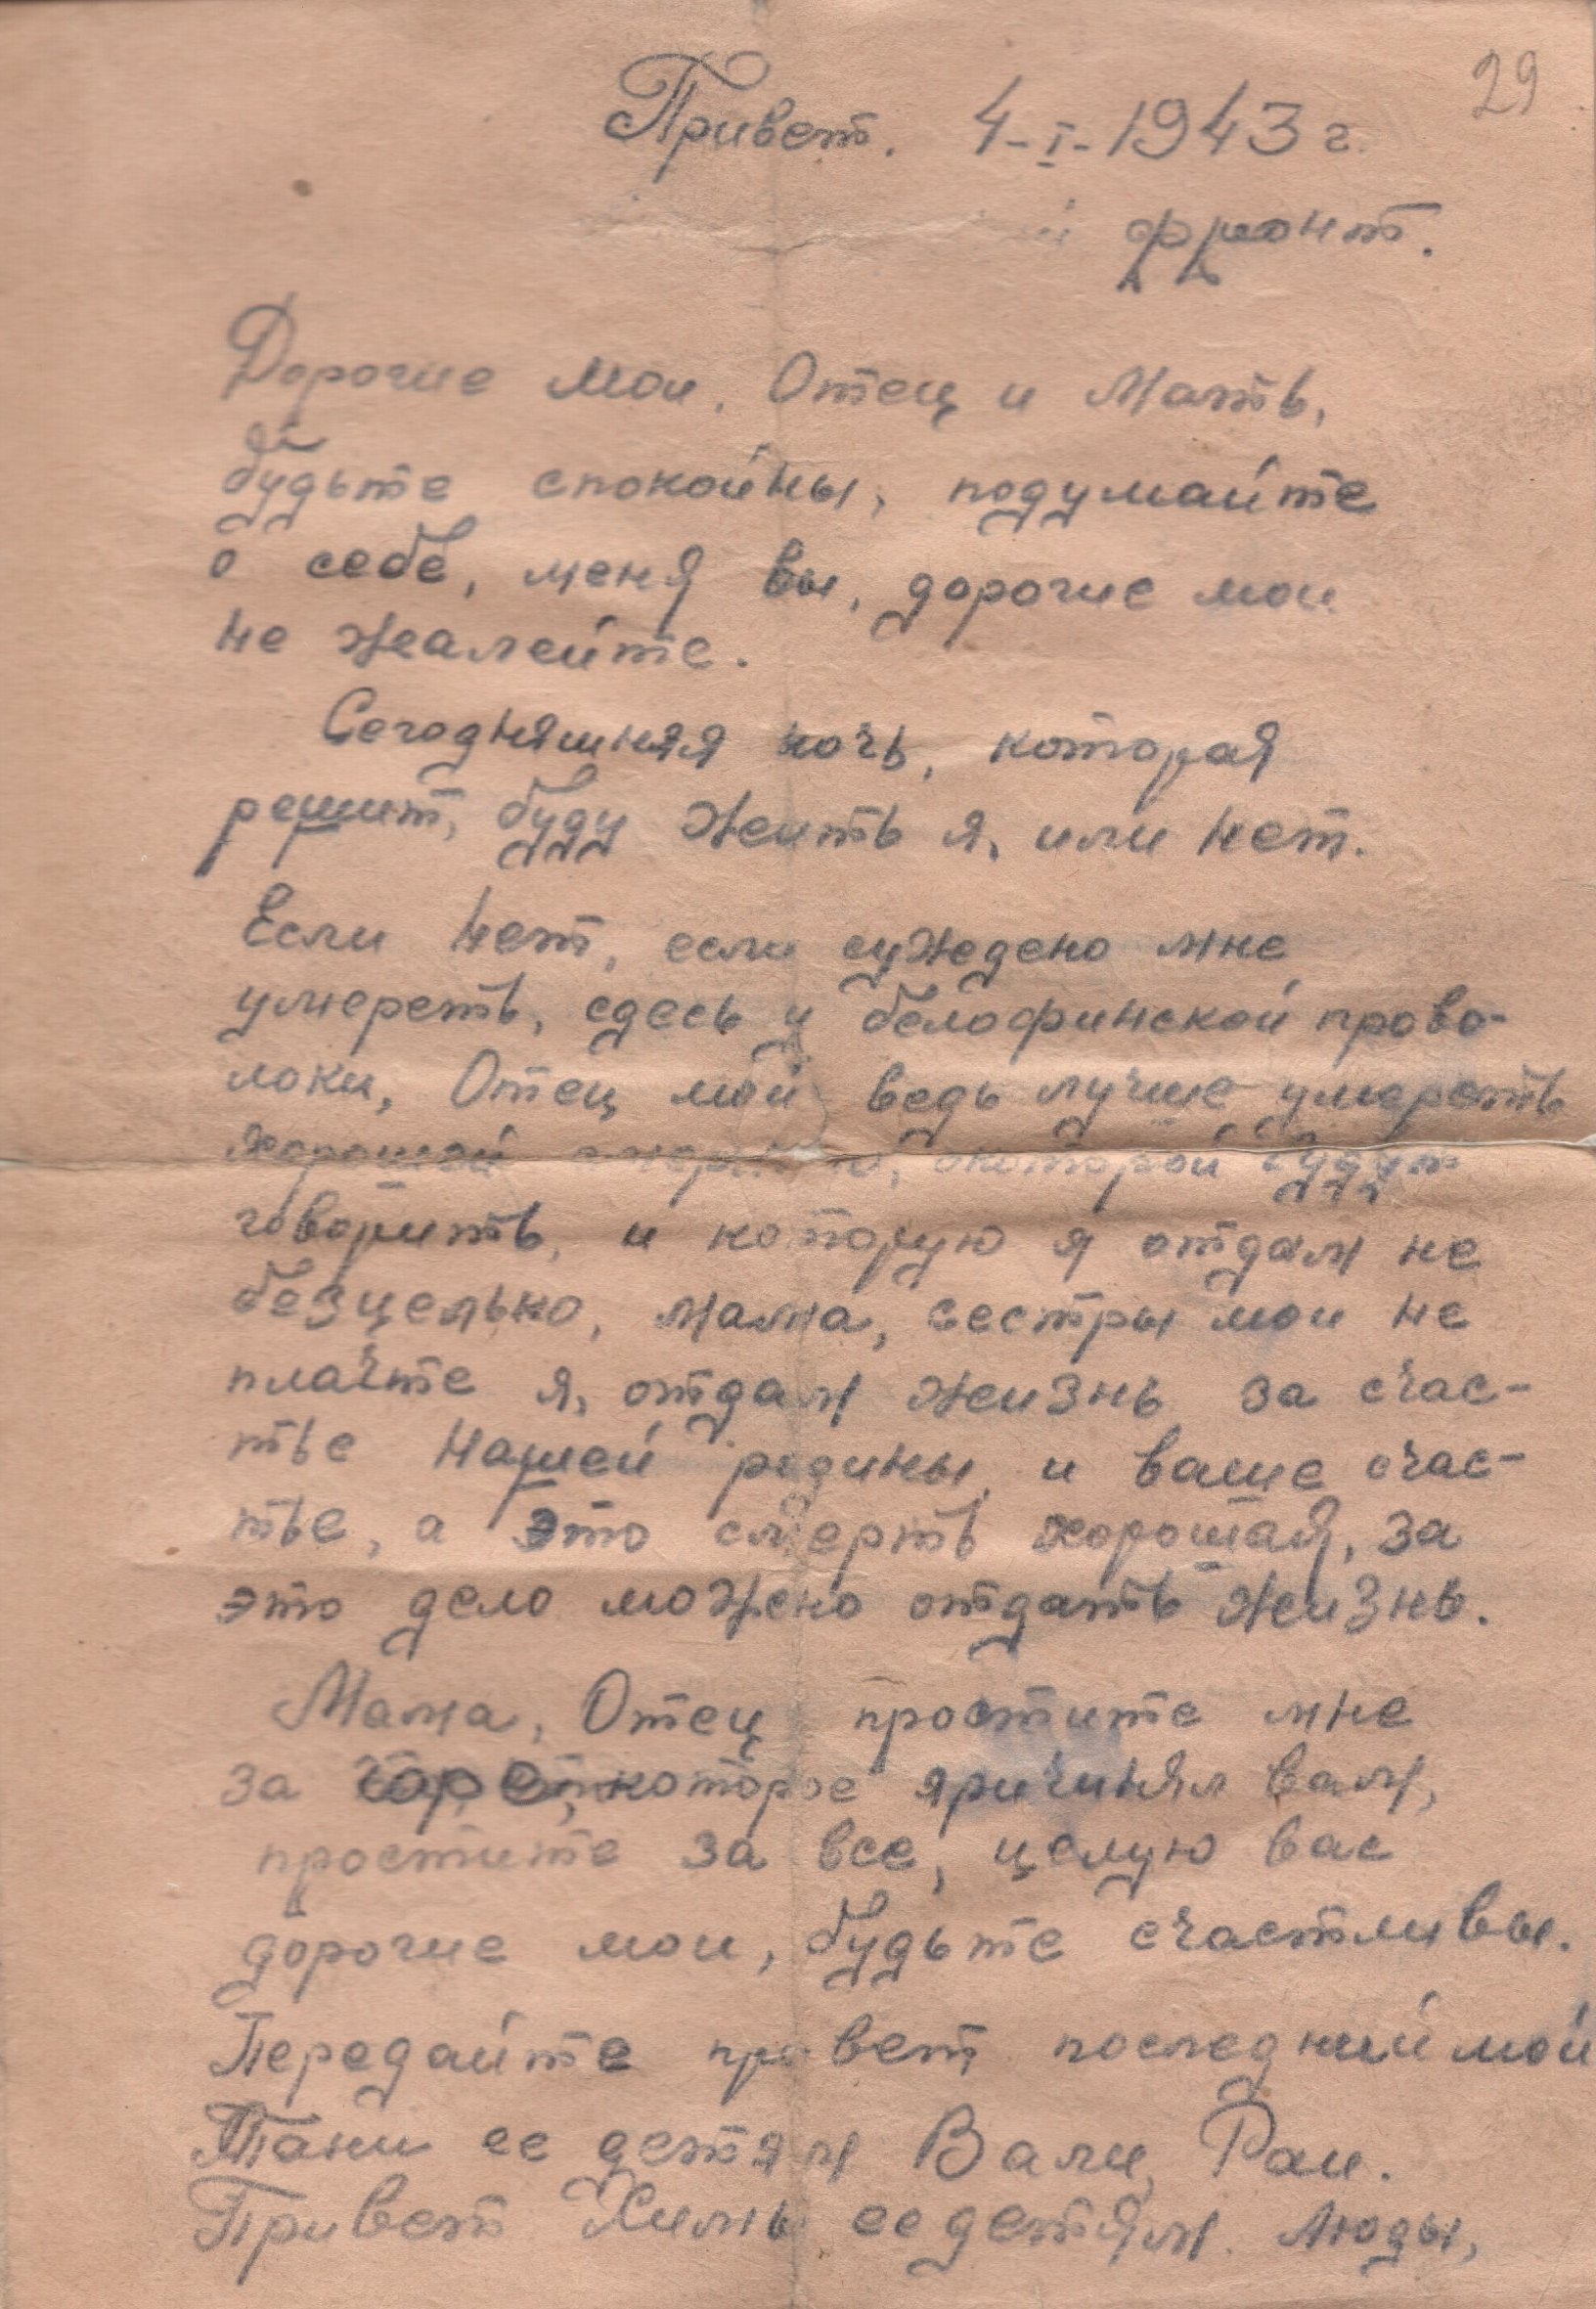 29
Привет. 4-I-1943 г.
фронт.
Дорогие мои, Отец и Мать,
будьте спокойны, подумайте
о себе, меня вы, дорогие мои
не жалейте.
Сегодняшняя ночь, которая
решит, буду жить я, или нет.
Если нет, если суждено мне
умереть, сдесь у белофинской прово-
локи, Отец мой ведь лучше умереть
хорошей смертью, окоторой будут
говорить, и которую я отдам не
безцельно, мама, сестры мои не
плачте я, отдам жизнь за счас-
тье нашей родины, и ваше счас-
тье, а это смерть хорошая, за
это дело можно отдать жизнь.
Мама, Отец простите мне
за горе, которое яричинял вам,
простите за все, целую вас
дорогие мои, будьте счастливы.
Передайте привет последний мой
Тани ее детям Вали, Раи.
Привет Химы ее детям. Люды,